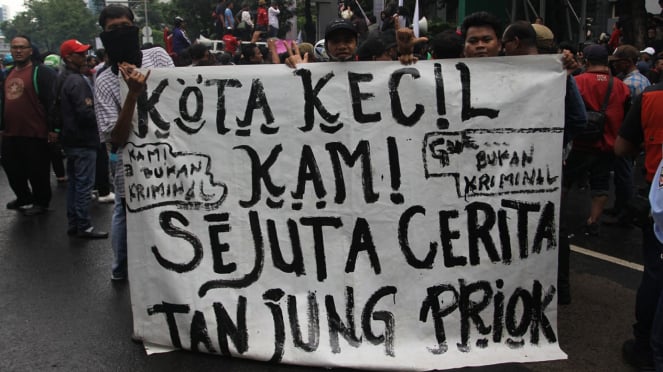 KOTA KECIL
KAMI
BUKAN
KRIMINAL
KAMI
BUKAN
KRIMINAL
SEJUTA CERITA
TANJUNG PRIOK